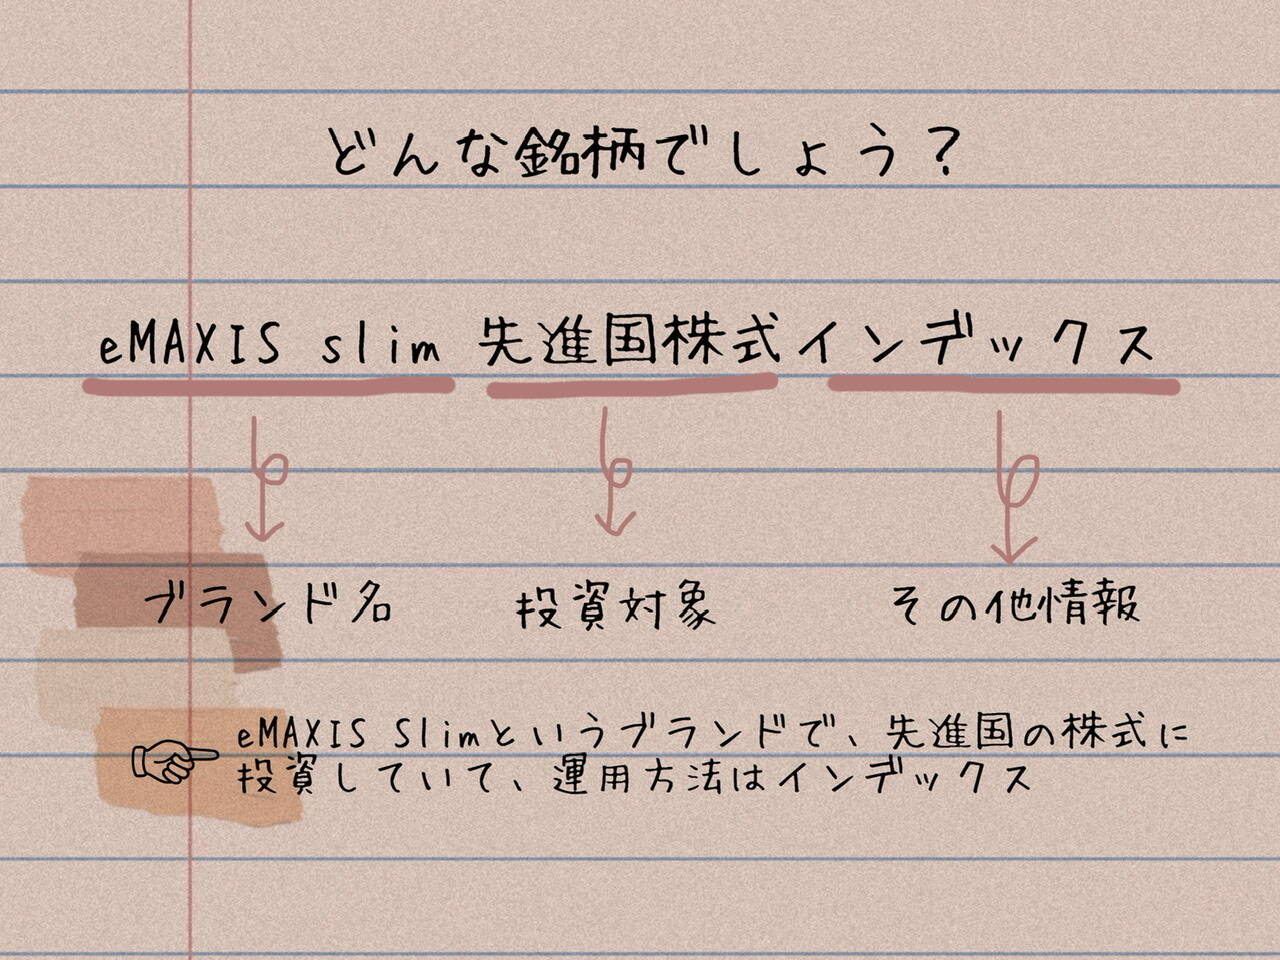 どんな銘柄でしょう？
eMAXIS slim 先進国株式インデックス
ブランド名 投資対象 その他情報
eMAXIS Slimというブランドで、先進国の株式に
投資していて、運用方法はインデックス